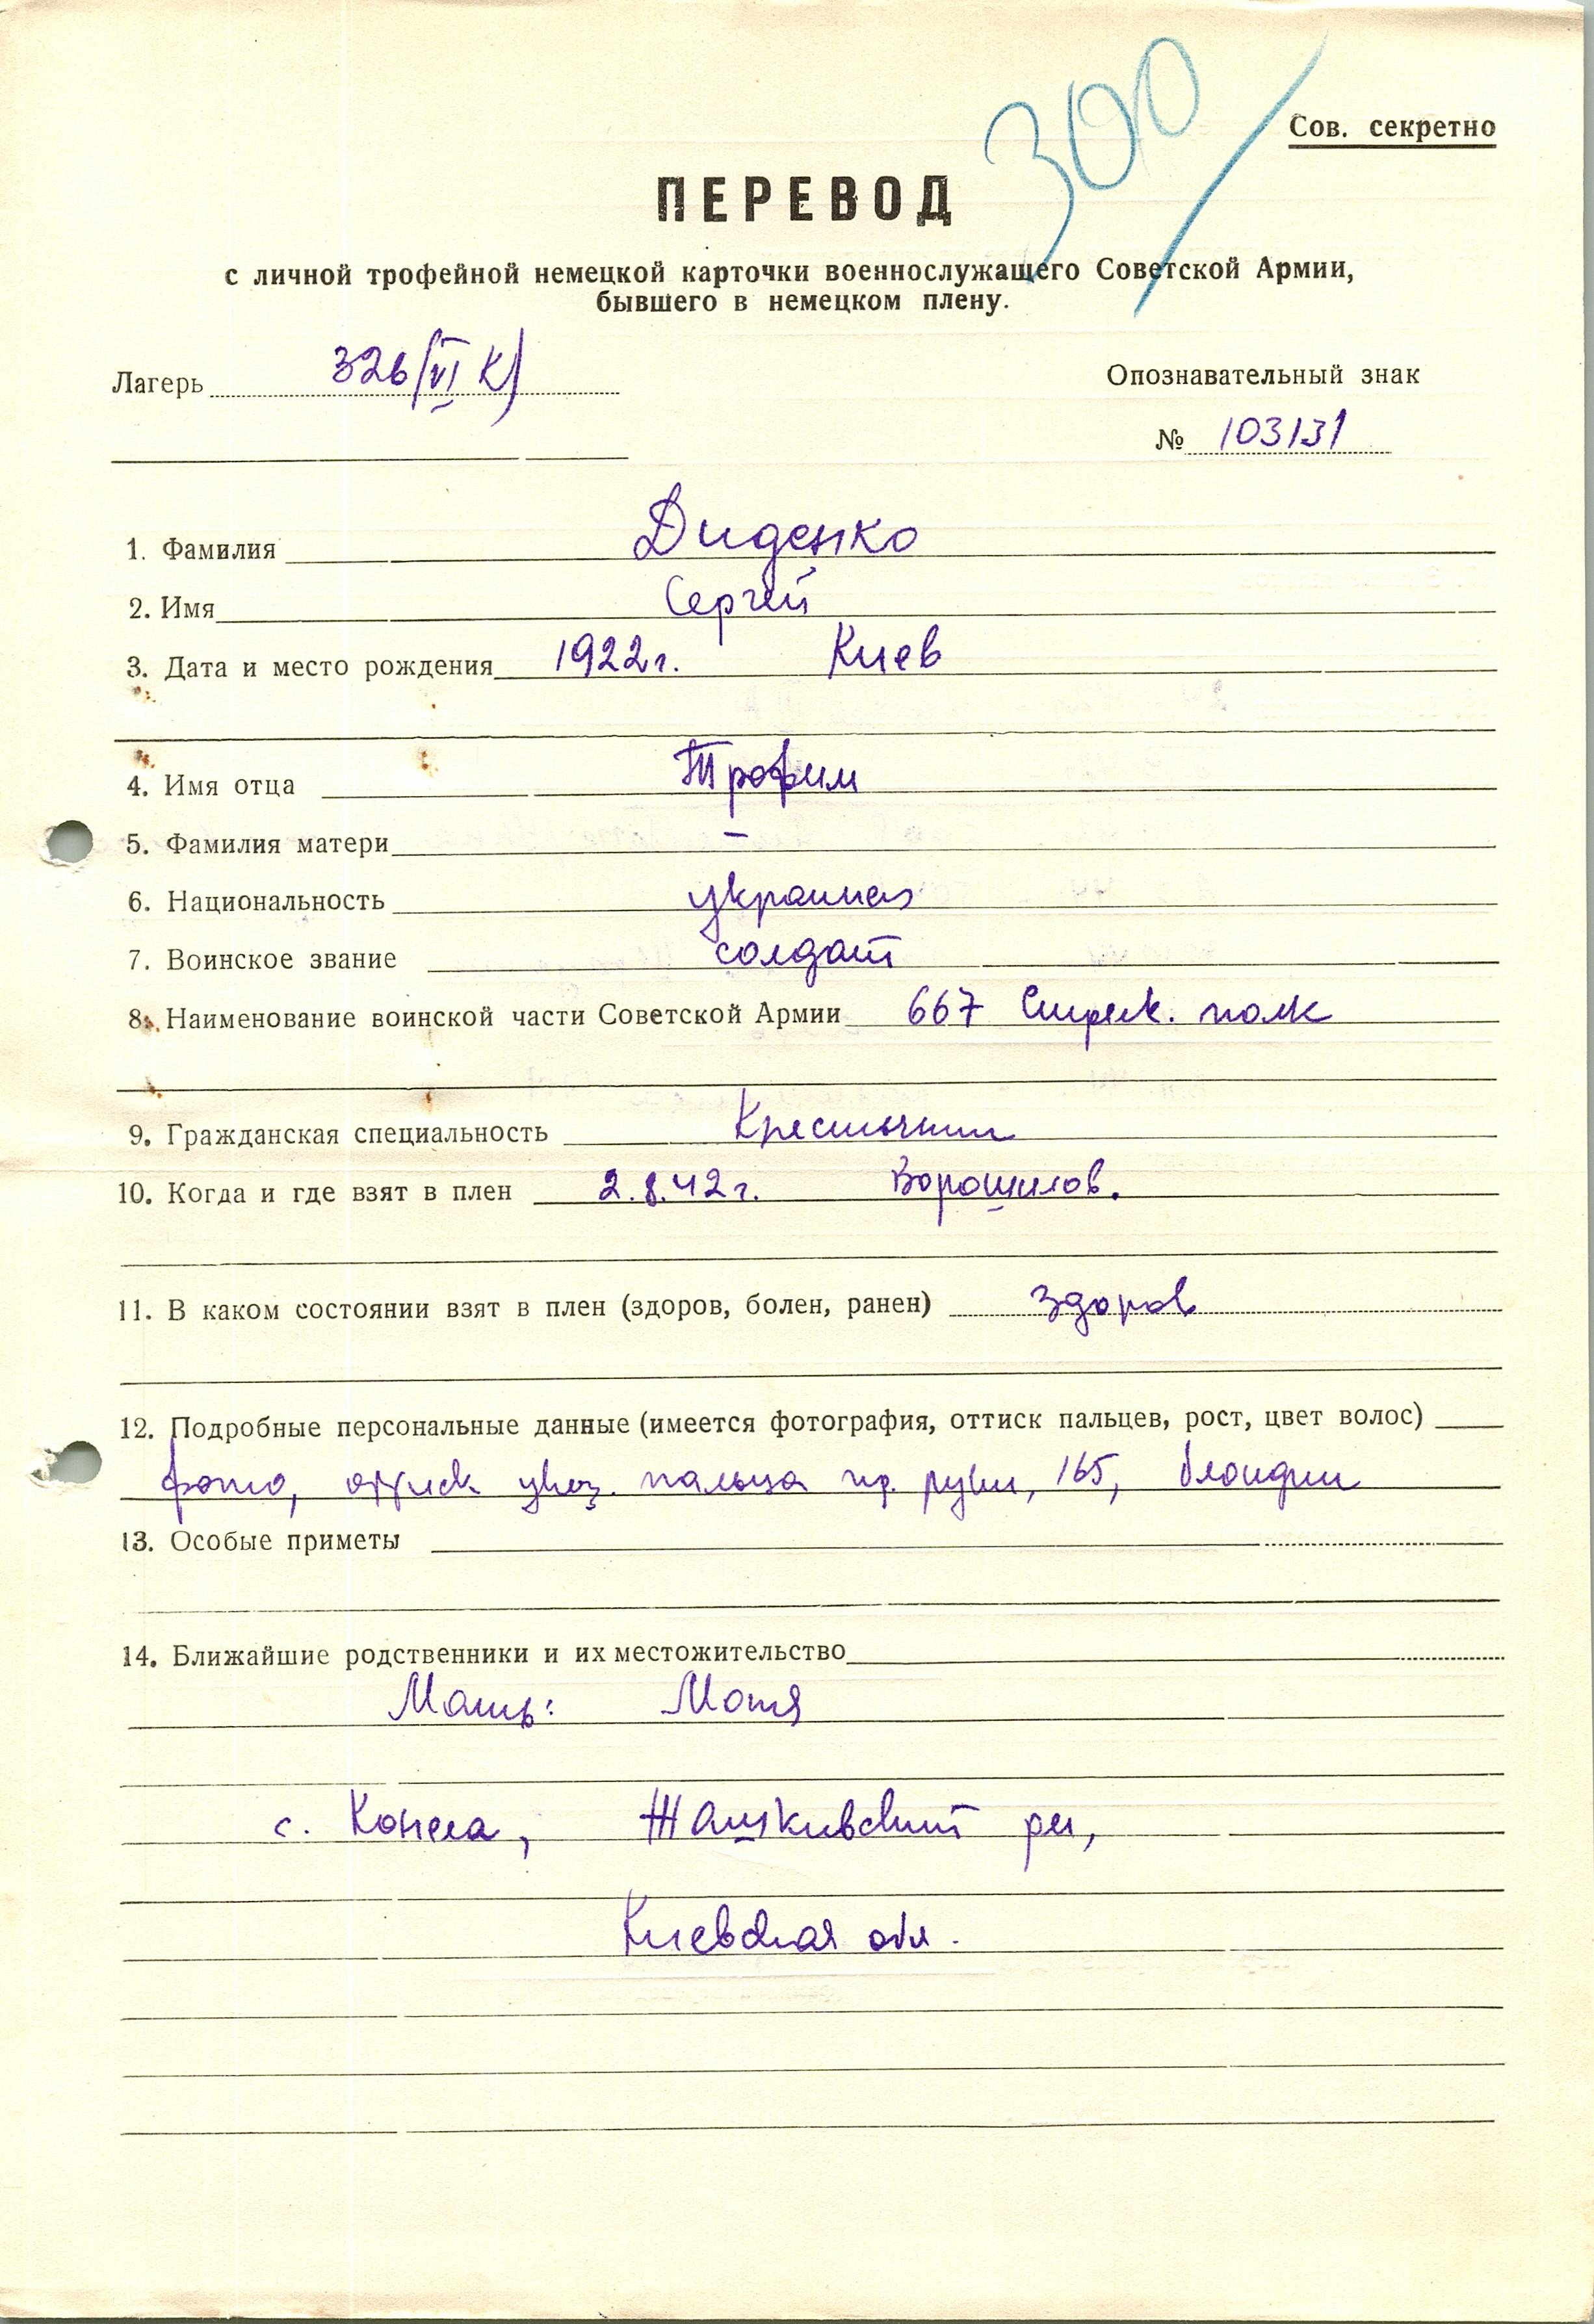 300/
Сов. секретно
ПЕРЕВОД
с личной трофейной немецкой карточки военнослужащего Советской Армии,
бывшего в немецком плену.
Лагерь 326 (VI К)
Опознавательный знак
№ 103131
1. Фамилия Диденко
2. Имя Сергей
3. Дата и место рождения 1922 г. Киев
4. Имя отца Трофим
5. Фамилия матери –
6. Национальность украинец
7. Воинское звание солдат
8. Наименование воинской части Советской Армии 667 Стрелк. полк
9. Гражданская специальность Крестьянин
10. Когда и где взят в плен 2.8.42 г. Ворошилов.
11. В каком состоянии взят в плен (здоров, болен, ранен) здоров
12. Подробные персональные данные (имеется фотография, оттиск пальцев, рост, цвет волос)
фото, оттиск указ. пальца пр. руки, 165, блондин
13. Особые приметы
14. Ближайшие родственники и их местожительство
Мать: Мотя
с. Конела, Жашкивский рн,
Киевская обл.